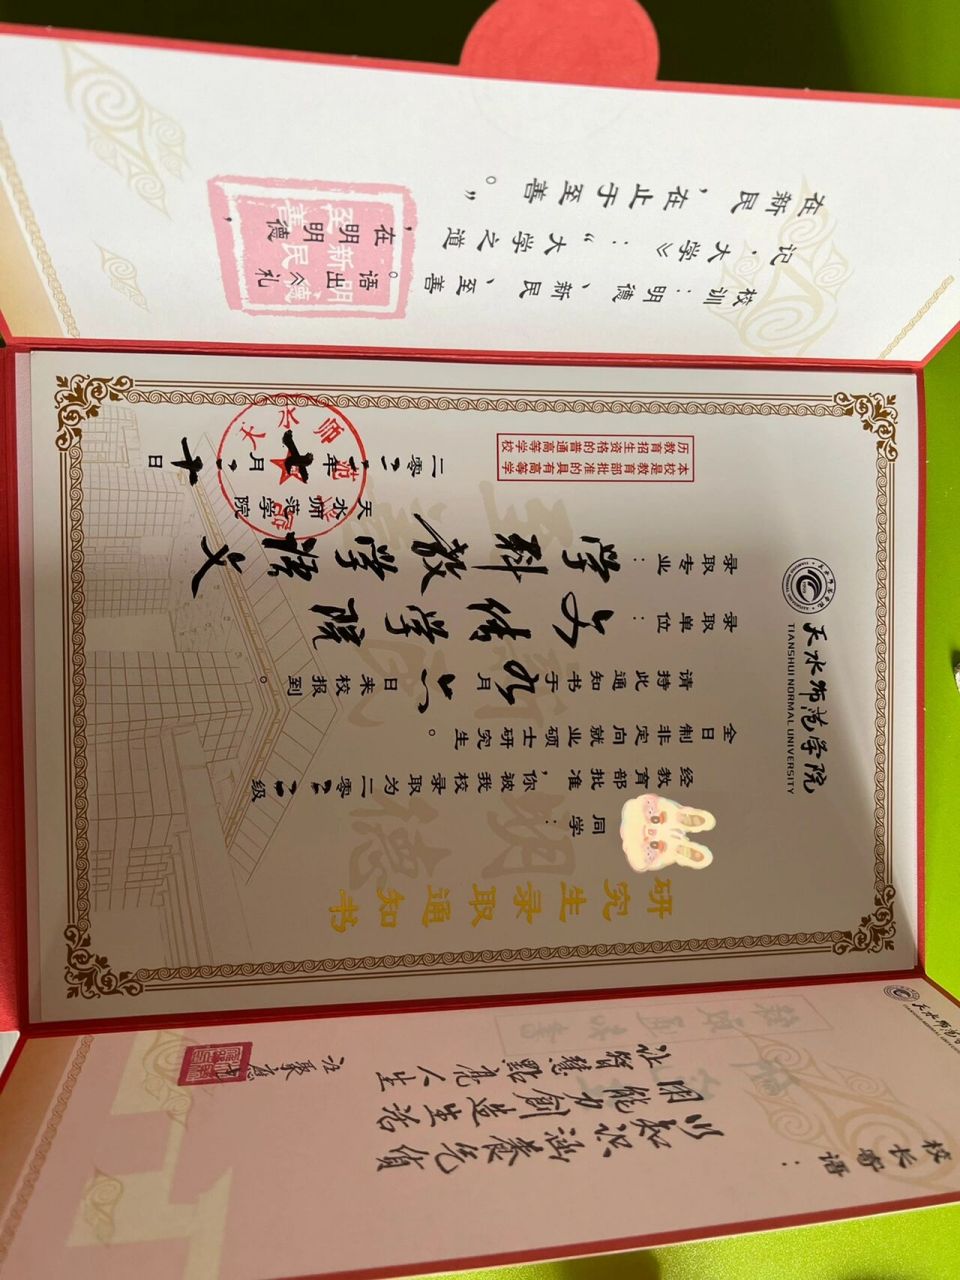 校训：明德、新民、至善。语出《礼
记·大学》：“大学之道，在明明德，
在新民，在止于至善。”
明德
新民
至善
天水师范学院
TIANSHUI NORMAL UNIVERSITY
研究生录取通知书
同学：
经教育部批准，你被我校录取为二零二一级
全日制非定向就业硕士研究生。
请持此通知书于九月六日来校报到。
录取单位：文传学院
录取专业：学科教学语文
天水师范学院
二零二一年七月二十日
本校是教育部批准的具有高等学
历教育招生资格的普通高等学校
天水师范学院
校长寄语：
以知识涵养气质
用能力创造生活
让智慧點亮人生